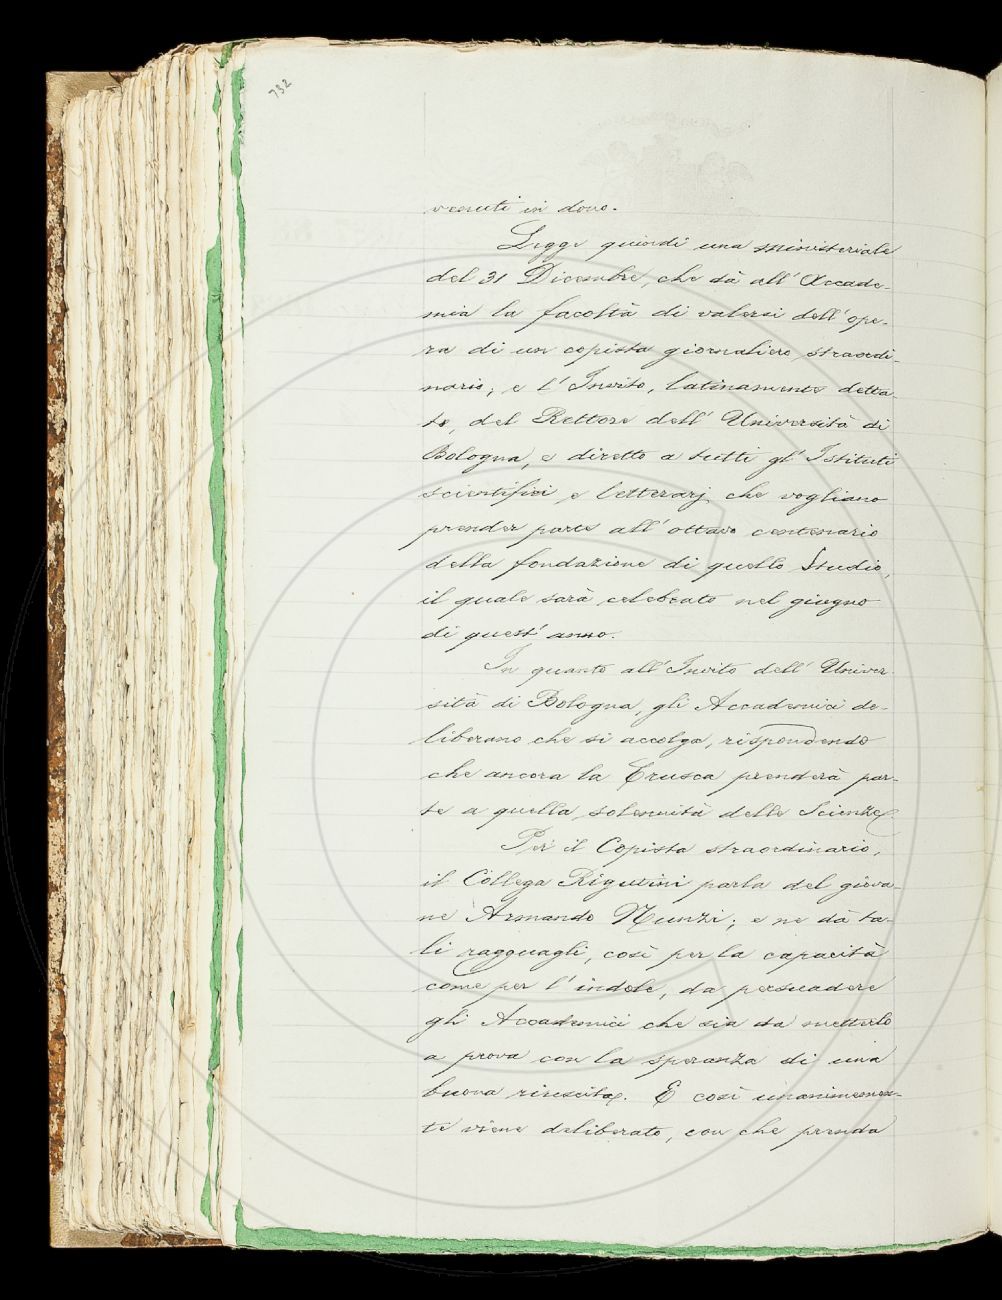 732
venuti in dono.
Legge quindi una ministeriale
del 31 Dicembre, che dà all' Accade-
mia la facoltà di valersi dell' ope-
ra di un copista giornaliero straordi-
nario; e l' Invito, latinamente detta-
to, del Rettore dell' Università di
Bologna, e diretto a tutti gl' Istituti
scientifici e letterarj che vogliano
prender parte all' ottavo centenario
della fondazione di quello Studio,
il quale sarà celebrato nel giugno
di quest' anno.
In quanto all' Invito dell' Univer-
sità di Bologna, gli Accademici de-
liberano che si accolga, rispondendo
che ancora la Crusca prenderà par-
te a quella solennità delle Scienze.
Per il Copista straordinario,
il Collega Rigutini parla del giova-
ne Armando Nunzi; e ne dà ta-
li ragguagli, così per la capacità
come per l' indole, da persuadere
gli Accademici che sia da metterlo
a prova con la speranza di una
buona riuscita. E così unanimemen-
te viene deliberato, con che prenda